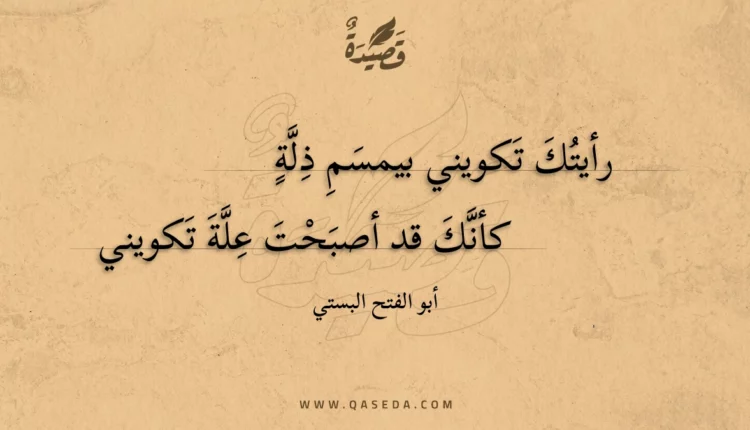 قَصِيْدَةٌ
رأيتُكَ تَكويني بيمسَمِ ذِلَّةٍ
كأنَّكَ قد أصبَحْتَ عِلَّةَ تَكويني
أبو الفتح البستي
WWW.QASEDA.COM